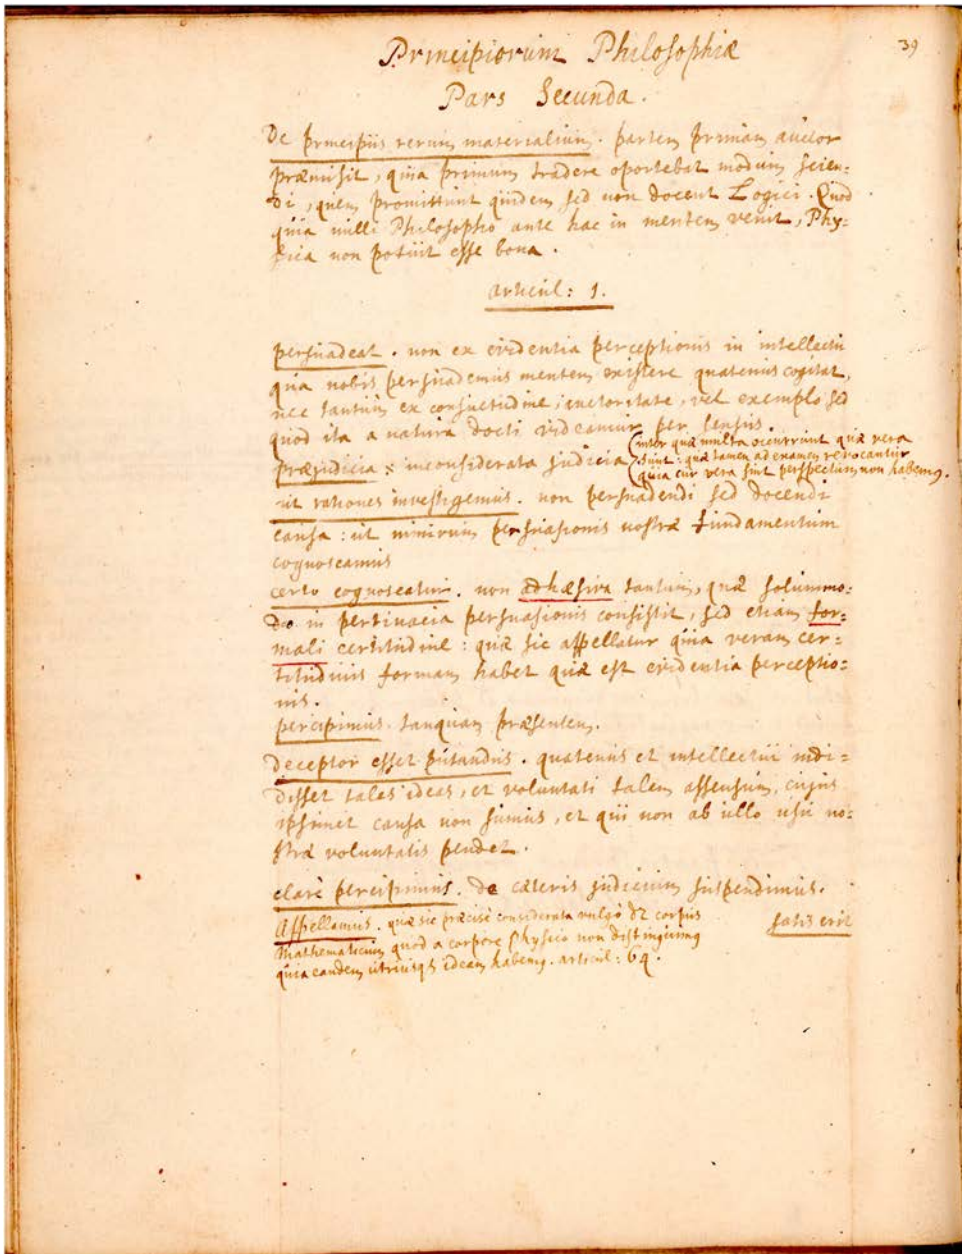 39
Principiorum Philosophiæ
Pars Secunda.
De principiis rerum materialium. partem primam auctor
præmisit, quia primum tradere oportebat modum scien-
di, quem promittunt quidem sed non docent Logici. Quod
quia nulli Philosopho ante hac in mentem venit, Phy-
sica non potuit esse bona.
articul: 1.
persuadeat. non ex evidentia perceptionis in intellectu
qua nobis persuademus mentem existere quatenus cogitat,
nec tantum ex consuetudine, auctoritate, vel exemplo sed
quod ita a natura docti videamur per sensus.
præjudicia: inconsiderata judicia
(inter quæ multa occurrunt quæ vera
sunt: quæ tamen ad examen revocantur
quia cur vera sint perspectum non habemus.
ut rationes investigemus. non persuadendi sed docendi
causa: ut nimirum persuasionis nostræ fundamentum
cognoscamus
certo cognoscatur. non adhæsiva tantum, quæ solummo:
do in pertinacia persuasionis consistit, sed etiam for-
mali certitudine: quæ sic appellatur quia veram cer-
titudinis formam habet quæ est evidentia perceptio:
nis.
percipimus. tanquam præsentem.
deceptor esset putandus. quatenus et intellectui indi=
disset tales ideas, et voluntati talem assensum, cujus
ipsimet causa non sumus, et qui non ab ullo usu no:
stræ voluntatis pendet.
clarè percipimus. De cæteris judicium suspendimus.
Appellamus. quæ sic præcisè considerata vulgò dr corpus
Mathematicum quod a corpore physico non distinguimus
quia eandem utriusq ideam habemus. articul: 64.
satis erit